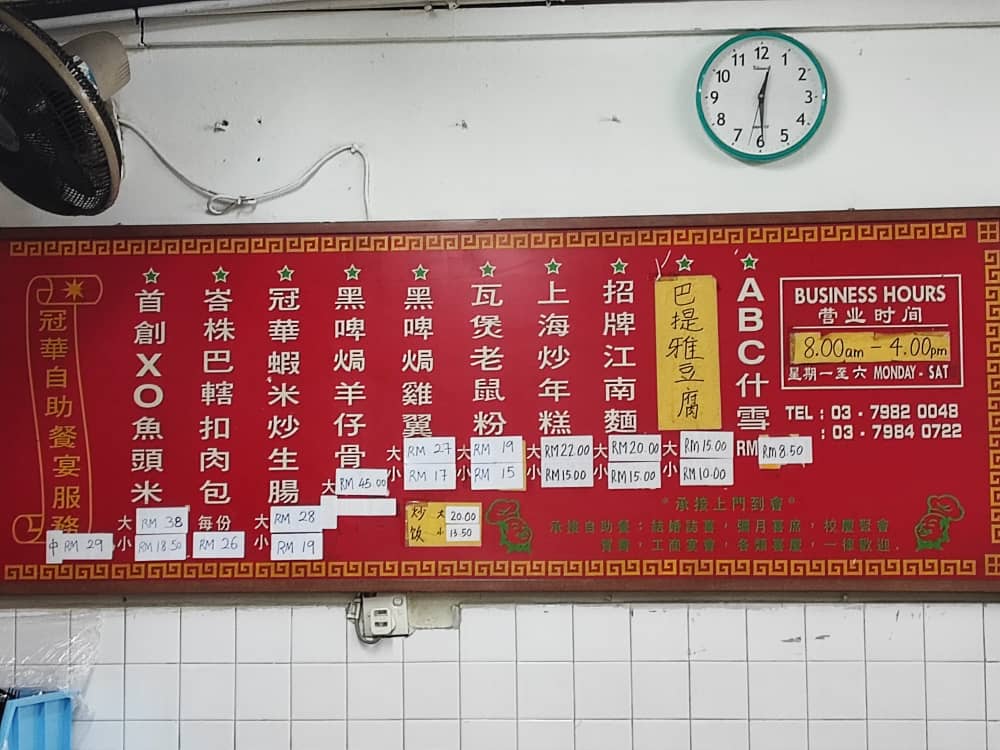 12
1
2
3
4
5
6
7
8
9
10
11
冠華自助餐宴服務
首創XO魚頭米
中 RM 29
大 RM 38
小 RM 18.50
峇株巴轄扣肉包
每份 RM 26
冠華蝦米炒生腸
大 RM 28
小 RM 19
黑啤焗羊仔骨
大 RM 45.00
黑啤焗雞翼
大 RM 27
小 RM 17
炒饭
大 20.00
小 13.50
瓦煲老鼠粉
大 RM 19
小 RM 15
上海炒年糕
大 RM22.00
小 RM15.00
招牌江南麵
大 RM20.00
小 RM15.00
巴提雅豆腐
大 RM15.00
小 RM10.00
ABC什雪
RM RM8.50
BUSINESS HOURS
营业时间
8.00am - 4.00pm
星期一至六 MONDAY - SAT
TEL : 03 - 7982 0048
: 03 - 7984 0722
承接上門到會
承接自助餐：結婚誌喜，彌月喜席，校慶聚會
賀壽，工商宴會，各類喜慶，一律歡迎.